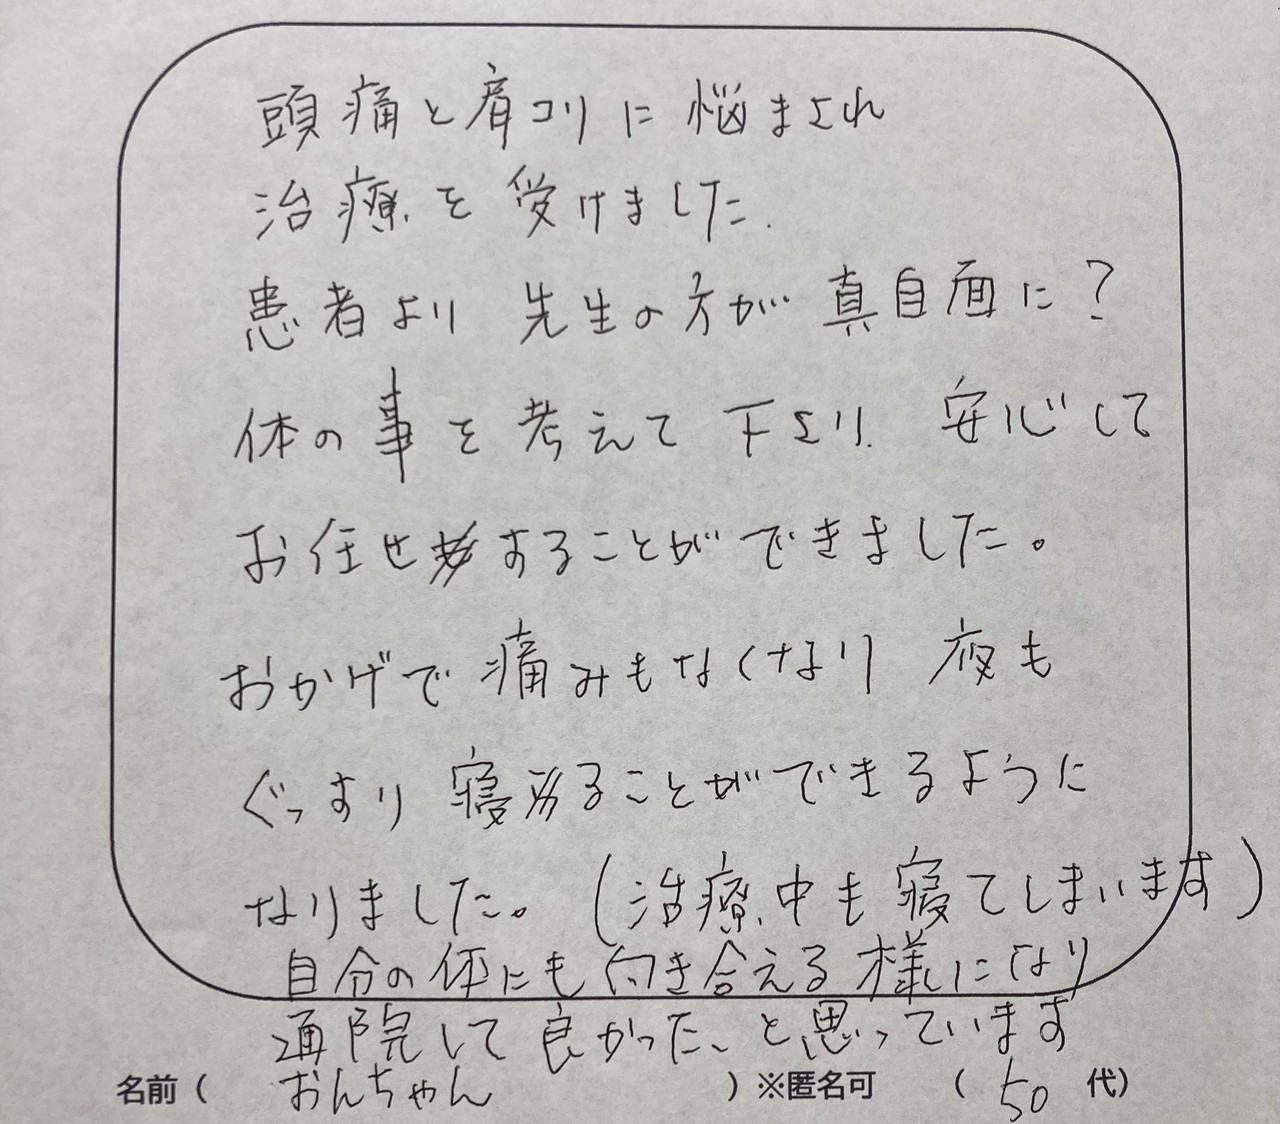 頭痛と肩コリに悩まされ
治療を受けました.
患者より 先生の方が 真自面に?
体の事を考えて下さり. 安心して
お任せすることができました。
おかげで痛みもなくなり 夜も
ぐっすり寝ることができるように
なりました。(治療中も寝てしまいます)
自分の体にも向き合える様になり
通院して良かった、と思っています
名前( おんちゃん )※匿名可 ( 50 代)